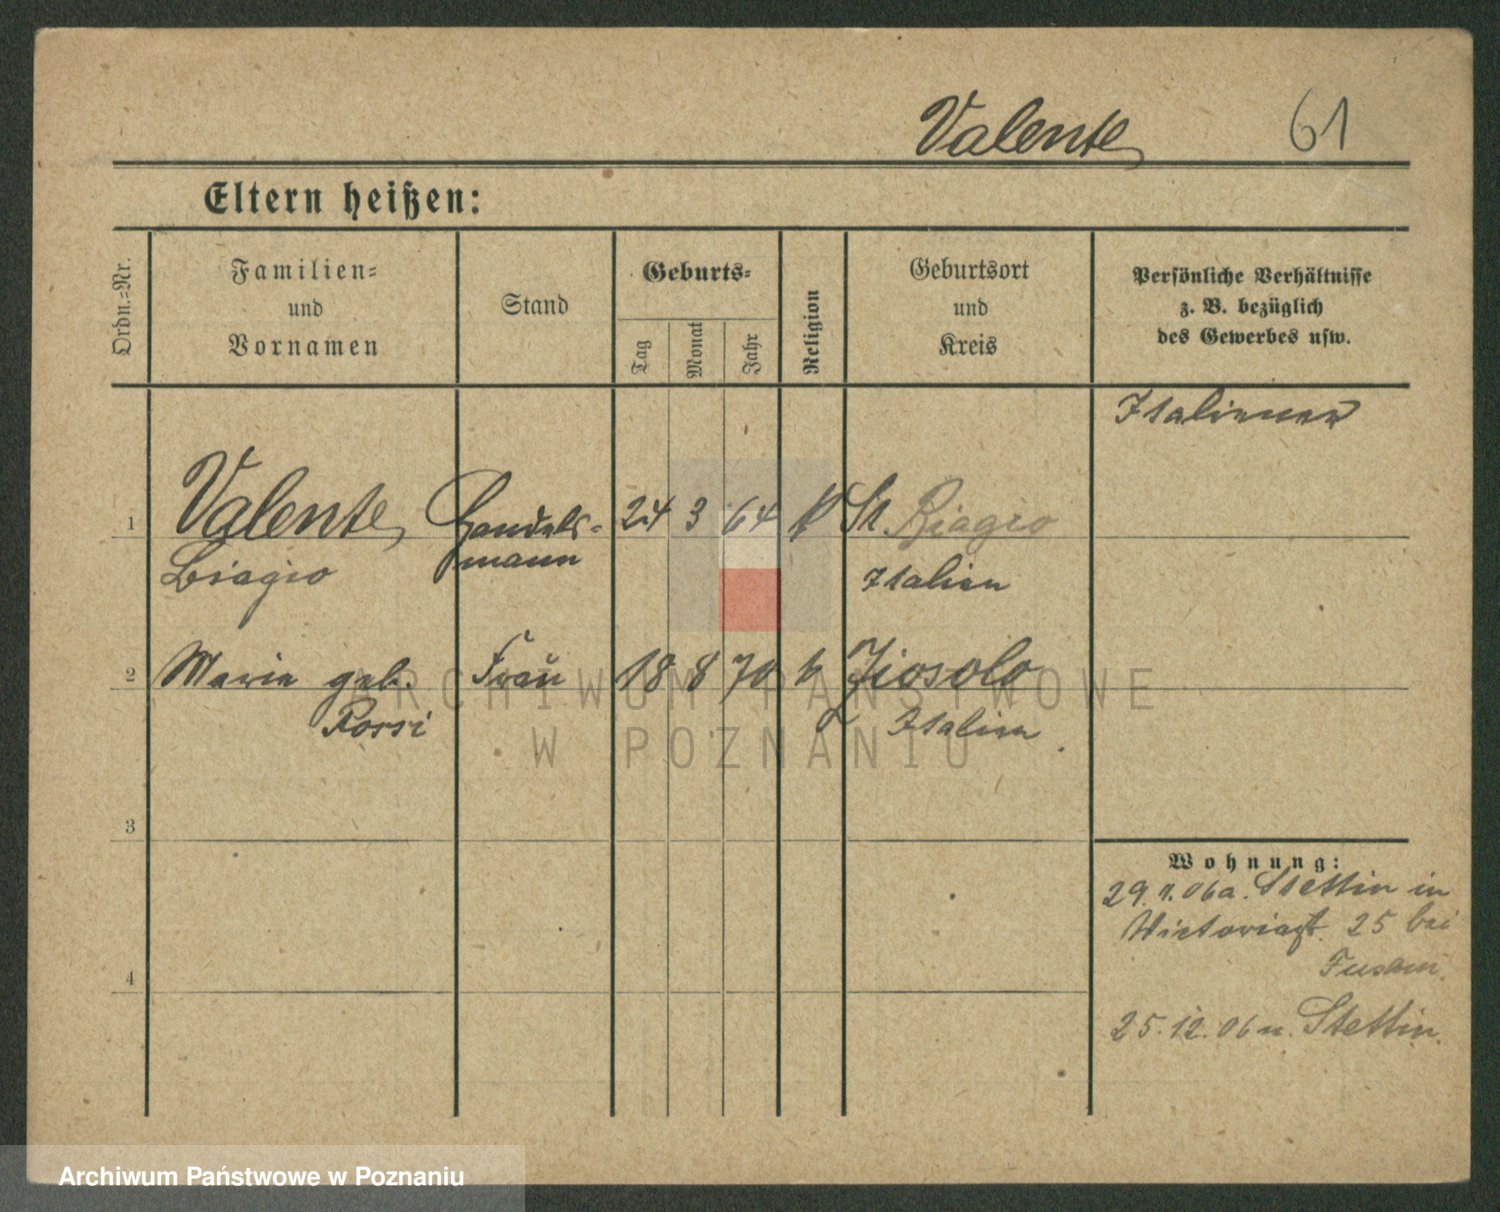 Valente 61
Eltern heißen:
Ordn.=Nr.
Familien=
und
Vornamen
Stand
Geburts=
Tag
Monat
Jahr
Religion
Geburtsort
und
Kreis
Persönliche Verhältnisse
z. B. bezüglich
des Gewerbes usw.
Italiener
1 Valente Handels= 24 3 64 k St. Biagio
Biagio mann Italien
2 Marie geb. Frau 18 8 70 k
Rossi Italien
3
4
Wohnung:
29. 1. 06 a. Stettin in
Victoriast. 25 bei
25. 12. 06 n. Stettin.
ARCHIWUM PAŃSTWOWE
W POZNANIU
Archiwum Państwowe w Poznaniu